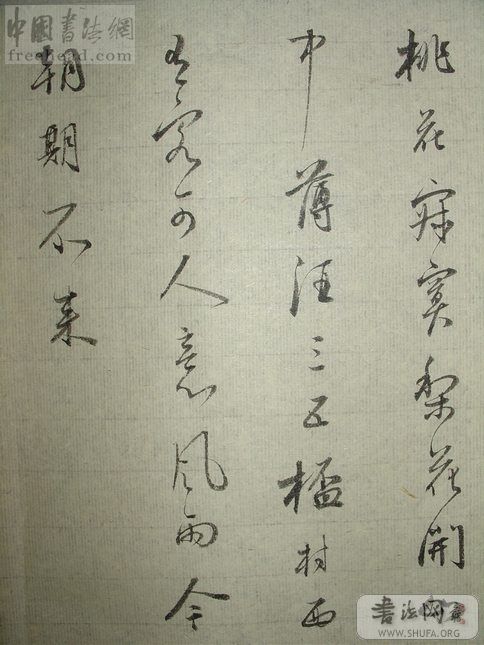 桃花寂寞梨花開
中薄酒三五杯村西
有客可人意風雨今
朝期不来
中國書法網
freehead.com
書法网
WWW.SHUFA.ORG